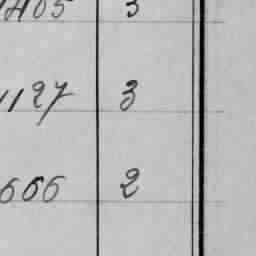 1405 3
1127 3
666 2